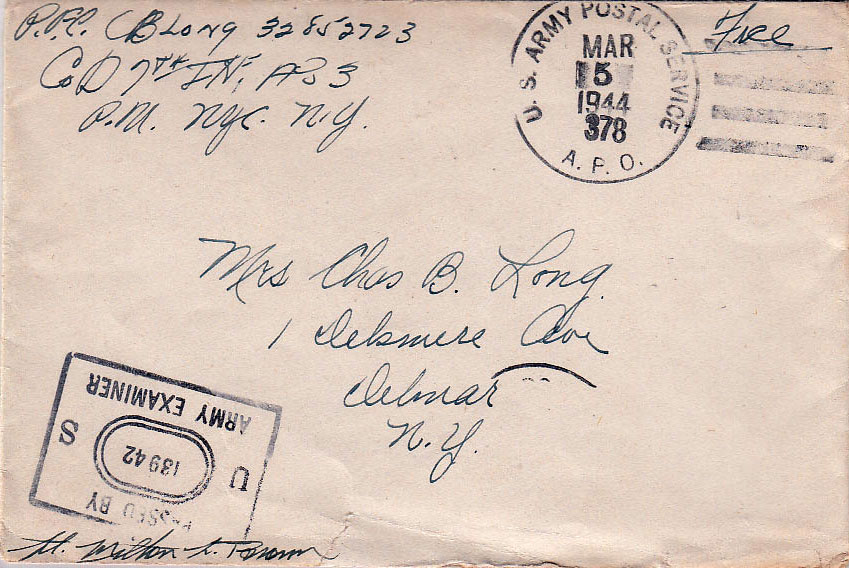 P.F.C. CB Long 32852723
Co D 7th INF, APO 3
P.M. NYC. N.Y.
U. S. ARMY POSTAL SERVICE
MAR
5
1944
378
A. P. O.
Free
Mrs Chas B. Long
1 Delsmere Ave
Delmar
N.Y.
PASSED BY
U S
13942
ARMY EXAMINER
Lt. Milton